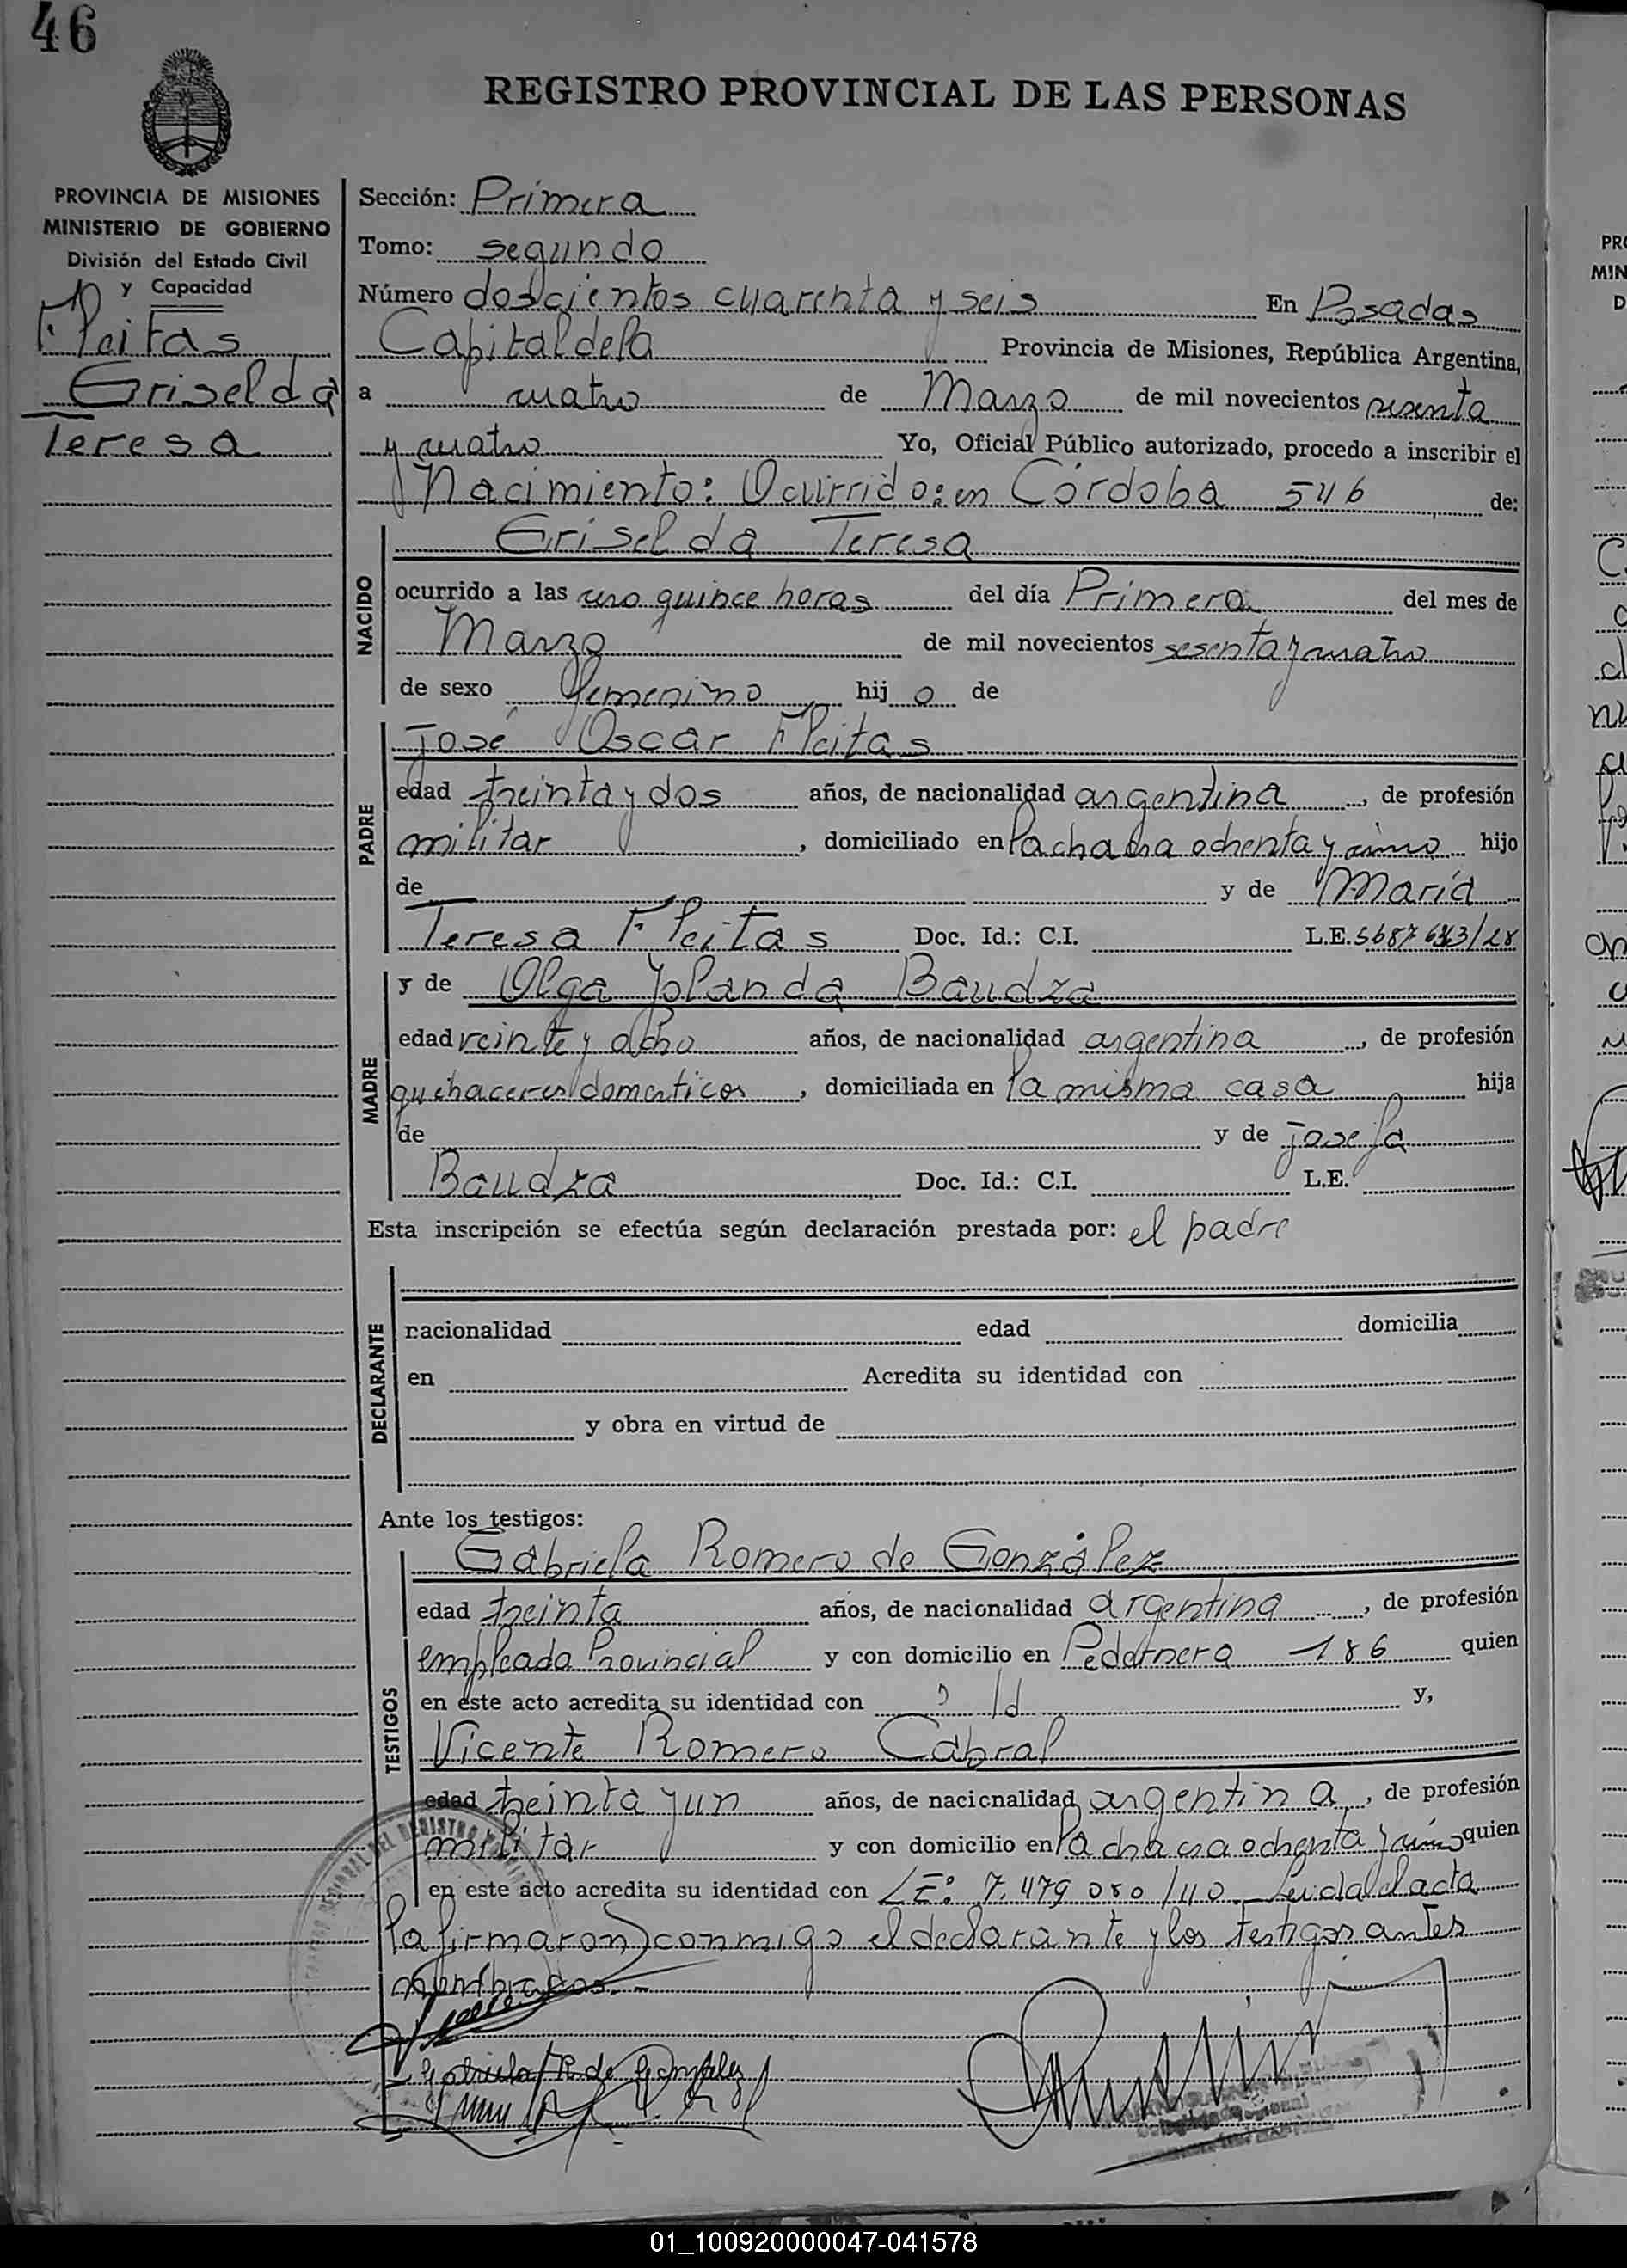 46
REGISTRO PROVINCIAL DE LAS PERSONAS
PROVINCIA DE MISIONES
MINISTERIO DE GOBIERNO
División del Estado Civil
y Capacidad
Fleitas
Griselda
Teresa
Sección: Primera
Tomo: segundo
Número doscientos cuarenta y seis En Posadas
Capital de la Provincia de Misiones, República Argentina,
a cuatro de Marzo de mil novecientos sesenta
y cuatro Yo, Oficial Público autorizado, procedo a inscribir el
Nacimiento: Ocurrido: en Córdoba 546 de:
Griselda Teresa
NACIDO
ocurrido a las uno quince horas del día Primero del mes de
Marzo de mil novecientos sesenta y cuatro
de sexo femenino hijo de
José Oscar Fleitas
PADRE
edad treinta y dos años, de nacionalidad argentina, de profesión
militar, domiciliado en la chacra ochenta y cinco hijo
de y de María
Teresa Fleitas Doc. Id.: C.I. L.E.
y de Olga Yolanda Baudza
MADRE
edad veinte y ocho años, de nacionalidad argentina, de profesión
quehaceres domesticos, domiciliada en la misma casa hija
de y de Josefa
Baudza Doc. Id.: C.I. L.E.
Esta inscripción se efectúa según declaración prestada por: el padre
DECLARANTE
nacionalidad edad domicilia
en Acredita su identidad con
y obra en virtud de
Ante los testigos:
Gabriela Romero de González
TESTIGOS
edad treinta años, de nacionalidad argentina, de profesión
empleada Provincial y con domicilio en Pedernera 186 quien
en este acto acredita su identidad con Id y,
Vicente Romero Cabral
edad treinta y un años, de nacionalidad argentina, de profesión
militar y con domicilio en la chacra ochenta y cinco quien
en este acto acredita su identidad con LE: 7.479 080/40 Leida el acta
la firmaron conmigo el declarante y los testigos antes
nombrados.-
Gabriela R. de González
01_100920000047-041578